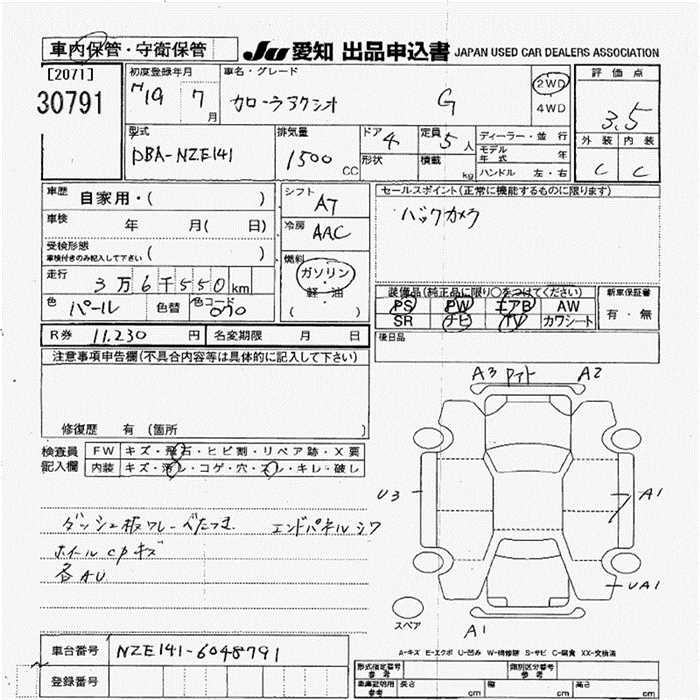 車内保管・守衛保管
JU 愛知 出品申込書 JAPAN USED CAR DEALERS ASSOCIATION
[2071]
30791
初度登録年月
H19 7 月
車名・グレード
カローラアクシオ G
2WD
4WD
評価点
3.5
外装 内装
C C
型式
DBA-NZE141
排気量
1500 CC
ドア 4
形状
定員 5 人
積載 kg
ディーラー・並行
モデル年式 年
ハンドル 左・右
車歴 自家用・( )
車検 年 月( 日)
受検形態
車検付きのみ記入して下さい ( )
走行 3万6千550km
色 パール 色替 色コード 070
シフト AT
冷房 AAC
燃料
ガソリン
・
軽油
( )
セールスポイント(正常に機能するものに限ります)
バックカメラ
装備品(純正品に限り○をつけてください)
PS PW エアB AW
SR ナビ TV カワシート
新車保証書
有・無
後日品
R券 11,230 円 名変期限 月 日
注意事項申告欄(不具合内容等は具体的に記入して下さい)
修復歴 有(箇所 )
検査員記入欄
FW キズ・飛石・ヒビ割・リペア跡・X要
内装 キズ・汚レ・コゲ・穴・スレ・キレ・破レ
ダッシュ板ワレーべたつき エンドパネルシワ
ホイールCPキズ
各AU
A3 A2
U3
A1
UA1
A1
スペア
A-キズ E-エクボ U-凹み W-補修跡 S-サビ C-腐食 XX-交換済
車台番号 NZE141-6048791
登録番号
型式指定番号
参考
類別区分番号
参考
参考
長さ cm 幅 cm 高さ cm